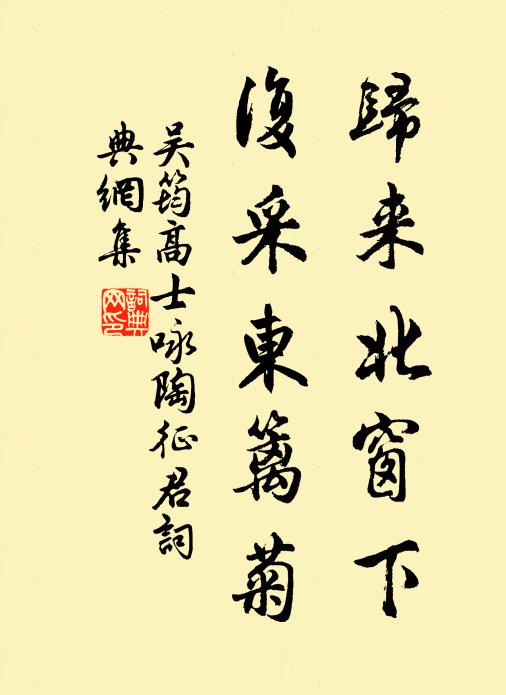 歸来北窗下
復采東篱菊
吴筠高士咏陶征君詞
典網集
詞典網印